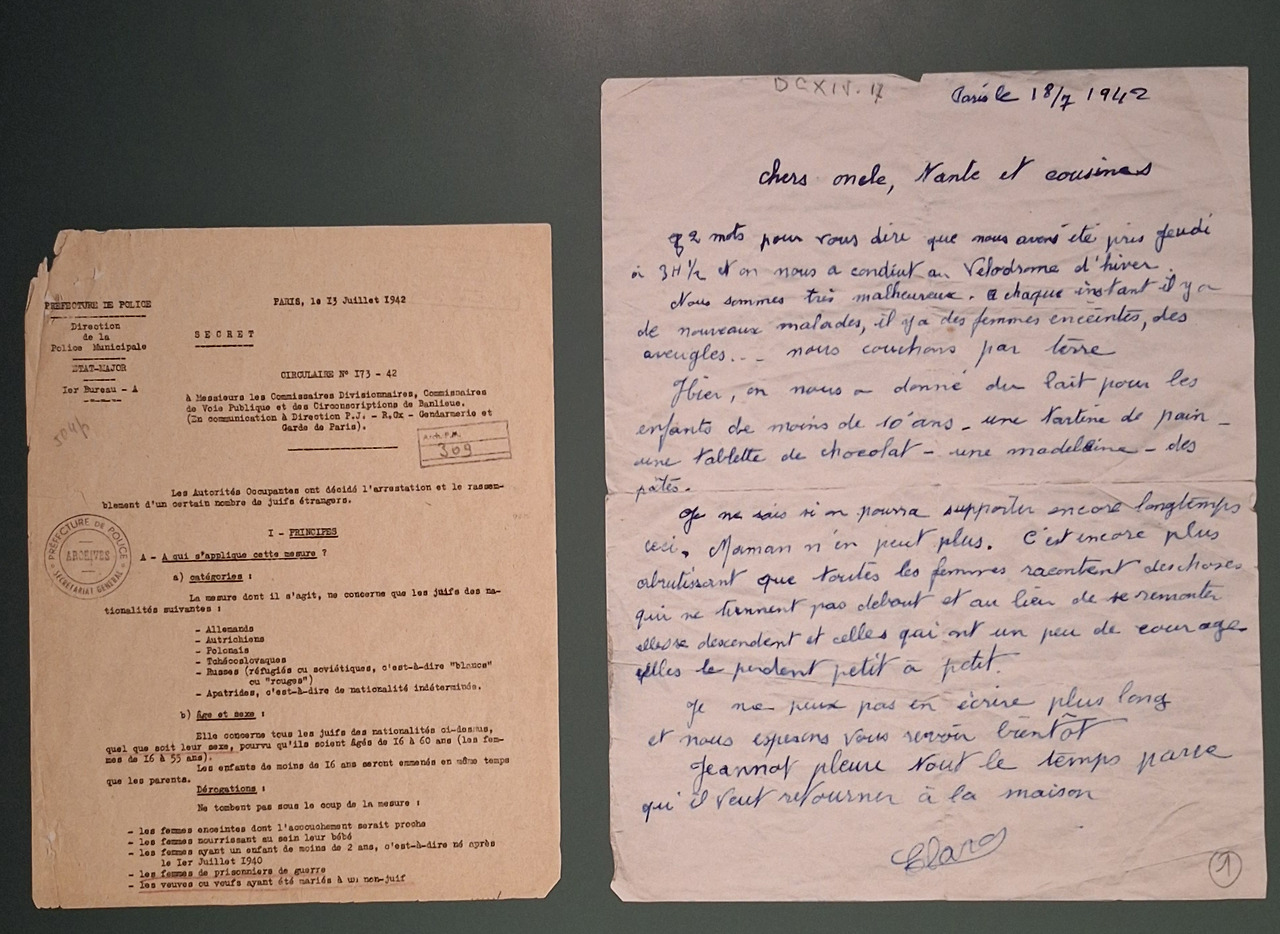 PREFECTURE DE POLICE
Direction
de la
Police Municipale
ETAT-MAJOR
1er Bureau - A
PARIS, le 13 Juillet 1942
SECRET
CIRCULAIRE N° 173 - 42
à Messieurs les Commissaires Divisionnaires, Commissaires
de Voie Publique et des Circonscriptions de Banlieue.
(En communication à Direction P.J. - R.Gx - Gendarmerie et
Garde de Paris).
369
Les Autorités Occupantes ont décidé l'arrestation et le rassem-
blement d'un certain nombre de juifs étrangers.
PRÉFECTURE DE POLICE
ARCHIVES
SECRETARIAT GENERAL
I - PRINCIPES
A - A qui s'applique cette mesure ?
a) catégories :
La mesure dont il s'agit, ne concerne que les juifs des na-
tionalités suivantes :
- Allemands
- Autrichiens
- Polonais
- Tchécoslovaques
- Russes (réfugiés ou soviétiques, c'est-à-dire "blancs"
ou "rouges")
- Apatrides, c'est-à-dire de nationalité indéterminée.
b) Âge et sexe :
Elle concerne tous les juifs des nationalités ci-dessus,
quel que soit leur sexe, pourvu qu'ils soient âgés de 16 à 60 ans (les fem-
mes de 16 à 55 ans).
Les enfants de moins de 16 ans seront emmenés en même temps
que les parents.
Dérogations :
Ne tombent pas sous le coup de la mesure :
- les femmes enceintes dont l'accouchement serait proche
- les femmes nourrissant au sein leur bébé
- les femmes ayant un enfant de moins de 2 ans, c'est-à-dire né après
le 1er Juillet 1940
- les femmes de prisonniers de guerre
- les veuves ou veufs ayant été mariés à un non-juif
DCXIV. 17
Paris le 18/7 1942
chers oncle, Tante et cousines
2 mots pour vous dire que nous avons été pris Jeudi
à 3H 1/2 et on nous a conduit au Vélodrome d'hiver.
Nous sommes très malheureux. a chaque instant il y a
de nouveaux malades, il y a des femmes enceintes, des
aveugles... nous couchons par terre
Hier, on nous a donné du lait pour les
enfants de moins de 10 ans - une tartine de pain -
une tablette de chocolat - une madeleine - des
pâtes.
Je ne sais si on pourra supporter encore longtemps
ceci. Maman n'en peut plus. C'est encore plus
abrutissant que toutes les femmes racontent des choses
qui ne tiennent pas debout et au lieu de se remonter
elles se descendent et celles qui ont un peu de courage
elles le perdent petit a petit.
Je ne peux pas en écrire plus long
et nous esperons vous revoir bientôt
Jeannot pleure tout le temps parce
qu'il veut retourner à la maison
1